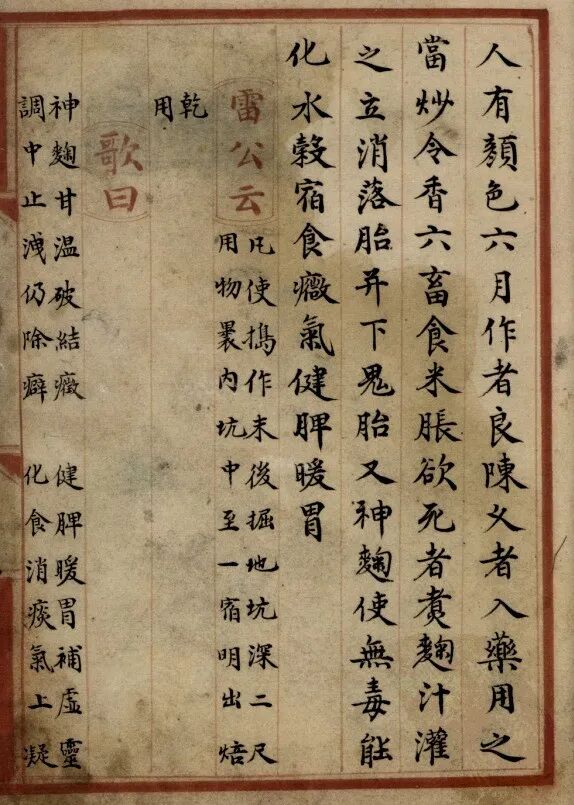 人有顏色六月作者良陳久者入藥用之
當炒令香六畜食米脹欲死者煑麴汁灌
之立消落胎并下鬼胎又神麴使無毒能
化水穀宿食癥氣健脾暖胃
雷公云
凡使搗作末後掘地坑深二尺
用物裹内坑中至一宿明出焙
乾
用
歌曰
神麴甘温破結癥 健脾暖胃補虛靈
調中止洩仍除癖 化食消痰氣上凝